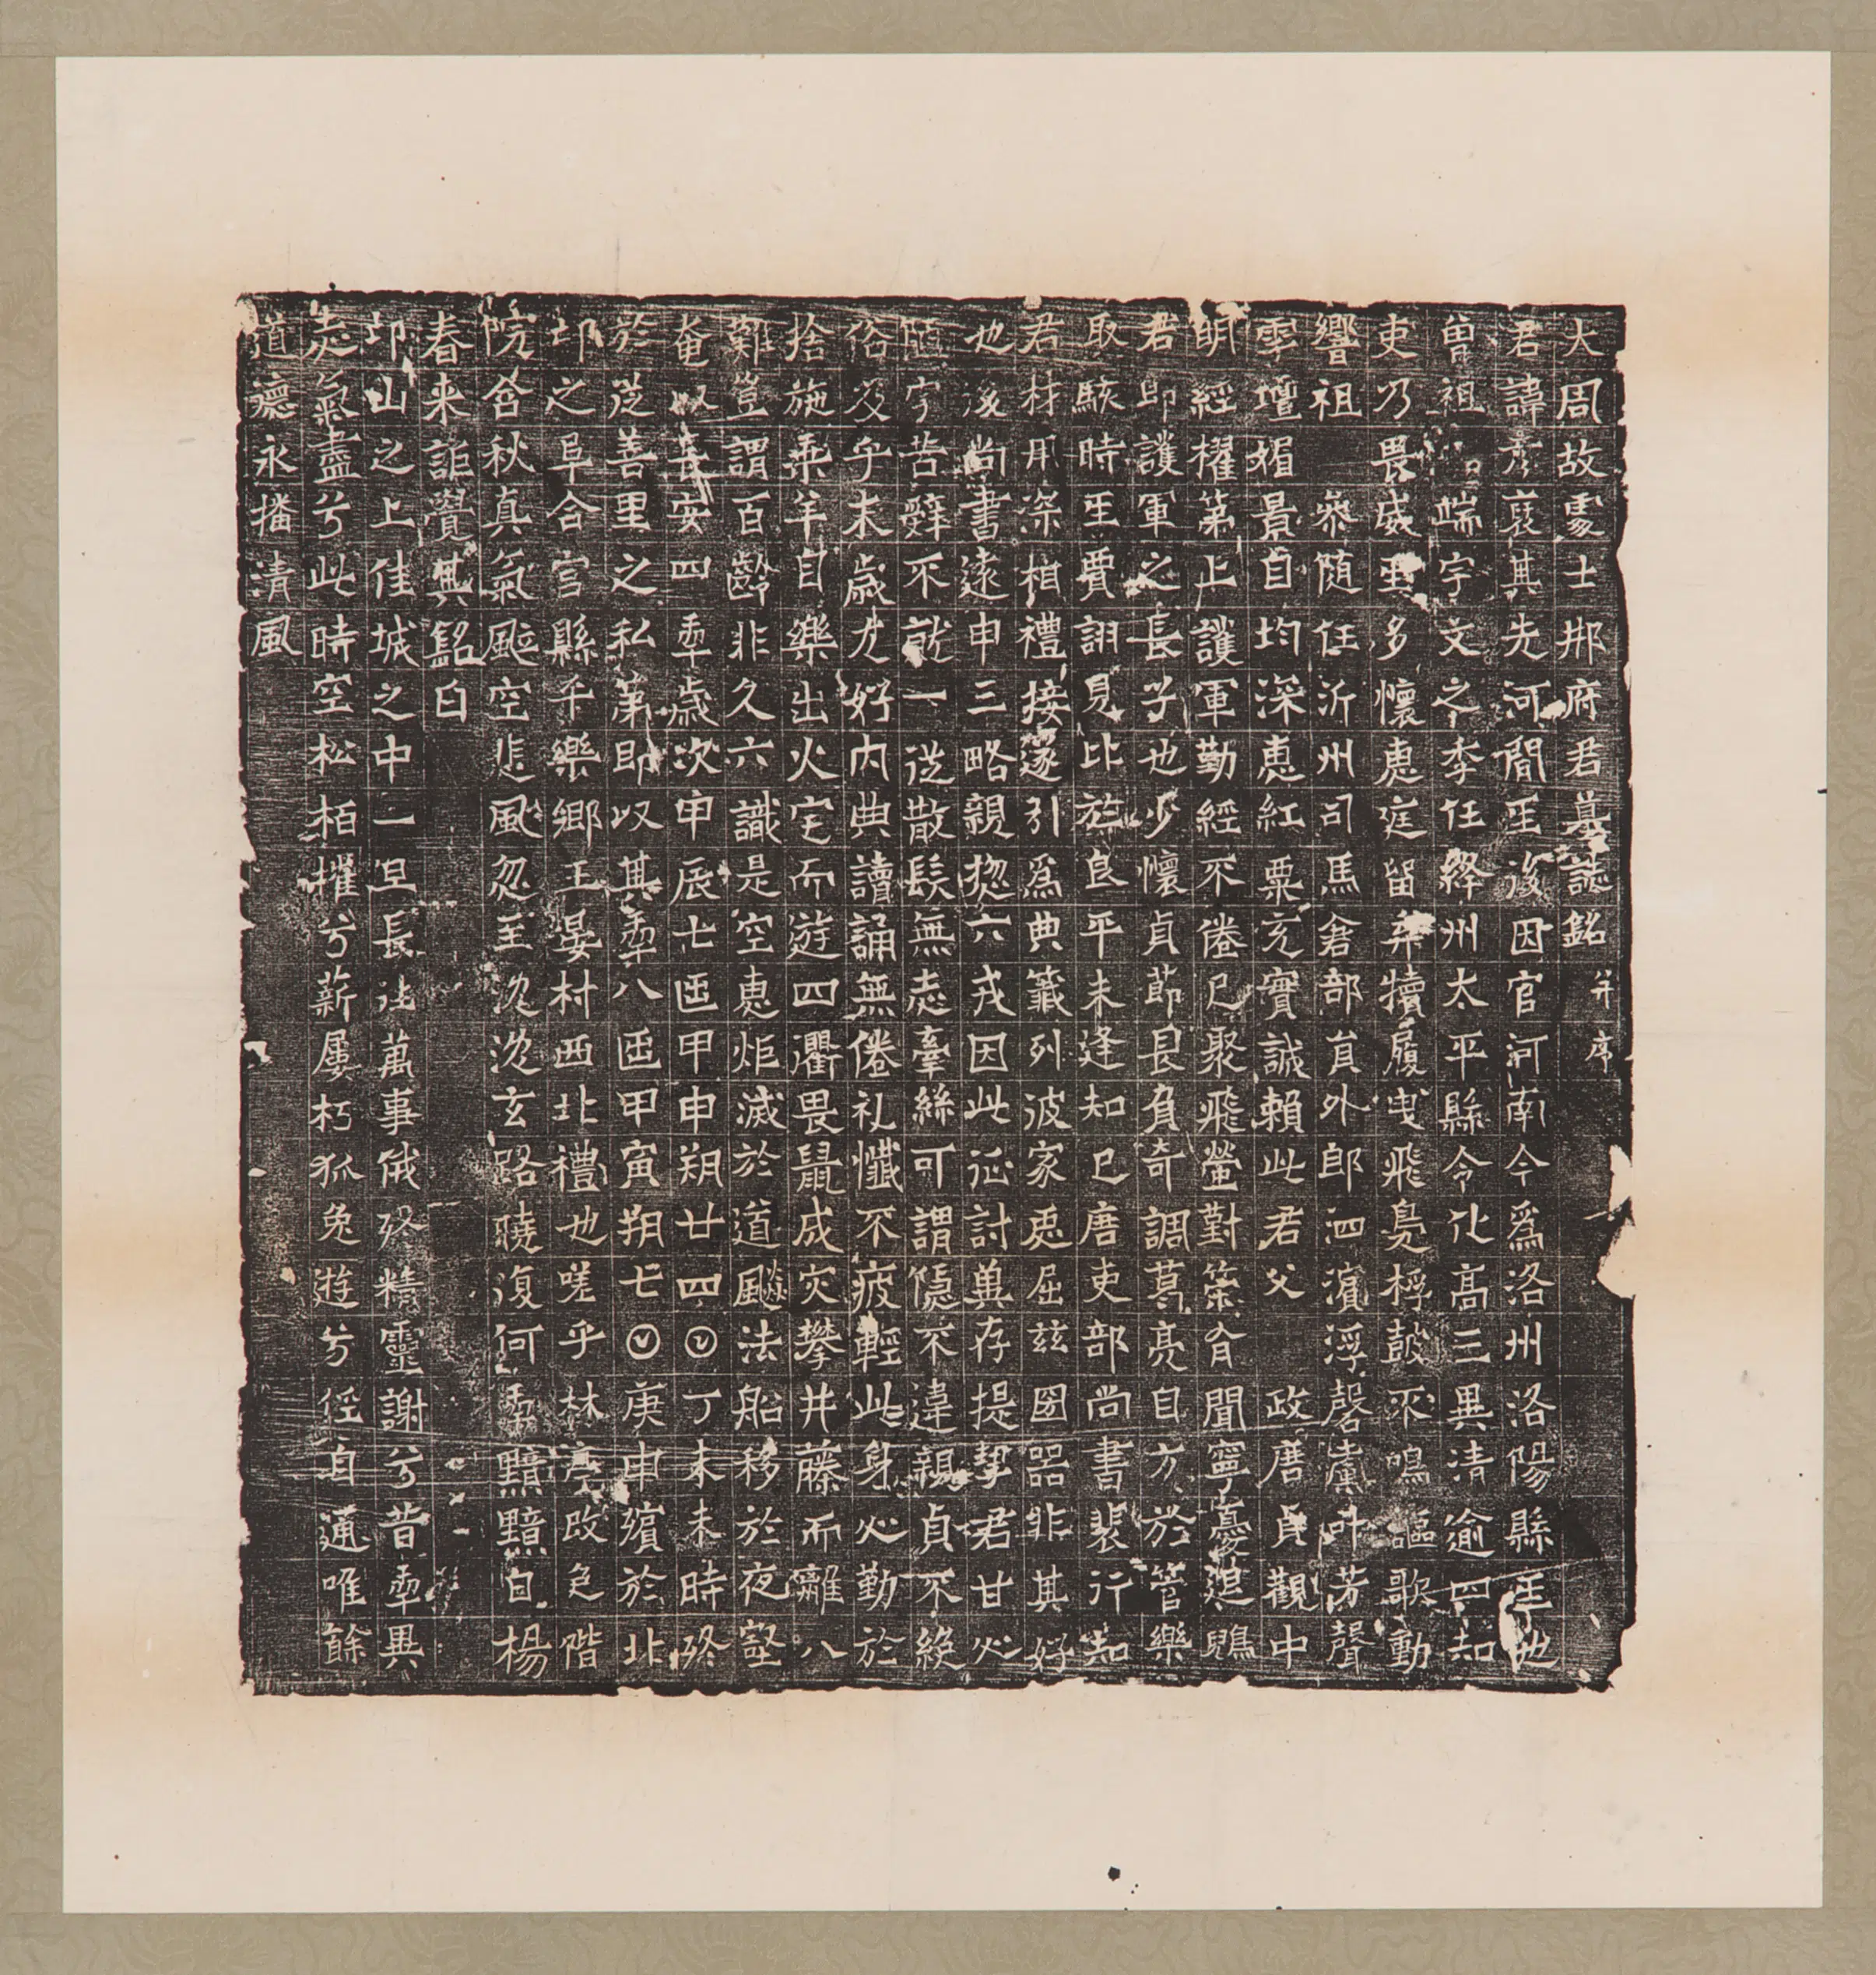 大周故處士邢府君墓誌銘 并序
君諱彥裒其先河間𤯔後因官河南今爲洛州洛陽縣𤯔也
曾祖端字文之李任絳州太平縣令化高三異清逾四知
吏乃畏威𤯔多懷惠庭留弃犢履曳飛鳧桴鼓不鳴謳歌動
響祖 恭隨任沂州司馬倉部員外郎泗濱浮磬芳聲
雩壇媚景自均深惠紅粟充實誠賴此君父 政唐貞觀中
明經擢第上護軍勤經不倦已聚飛螢對策有聞寧憂退鷁
君即護軍之長子也少懷貞節長負奇調葛亮自方於管樂
取駭時𤯔賈詡見比於良平未逢知己唐吏部尚書裴行知
君材用深相禮接遂引爲典籤列波家兎屈茲圀器非其好
也後尚書遠申三略親惣六戎因此征討冀存提挈君甘心
隨字苦辭不就一從散髮無志牽絲可謂隱不違親貞不絕
俗及乎末歲尤好內典讀誦無倦礼懺不疲輕此身心勤於
捨施乘羊自樂出火宅而遊四衢畏鼠成灾攀井藤而離八
難豈謂百齡非久六識是空惠炬滅於道颷法船移於夜壑
奄以長安四𠡦歲次甲辰七𠥱甲申朔廿四𡆠丁未未時終
於從善里之私第即以其𠡦八𠥱甲寅朔七𡆠庚申殯於北
邙之阜合宮縣平樂鄉王晏村西北禮也嗟乎林改色階
院含秋真氣颷空悲風忽至沈沈玄路曉復何𠡦黯黯白楊
春来詎覺其銘曰
邙山之上佳城之中一旦長往萬事俄終精靈謝兮昔𠡦異
志氣盡兮此時空松栢摧兮薪屢朽狐兔遊兮徑自通唯餘
道德永播清風